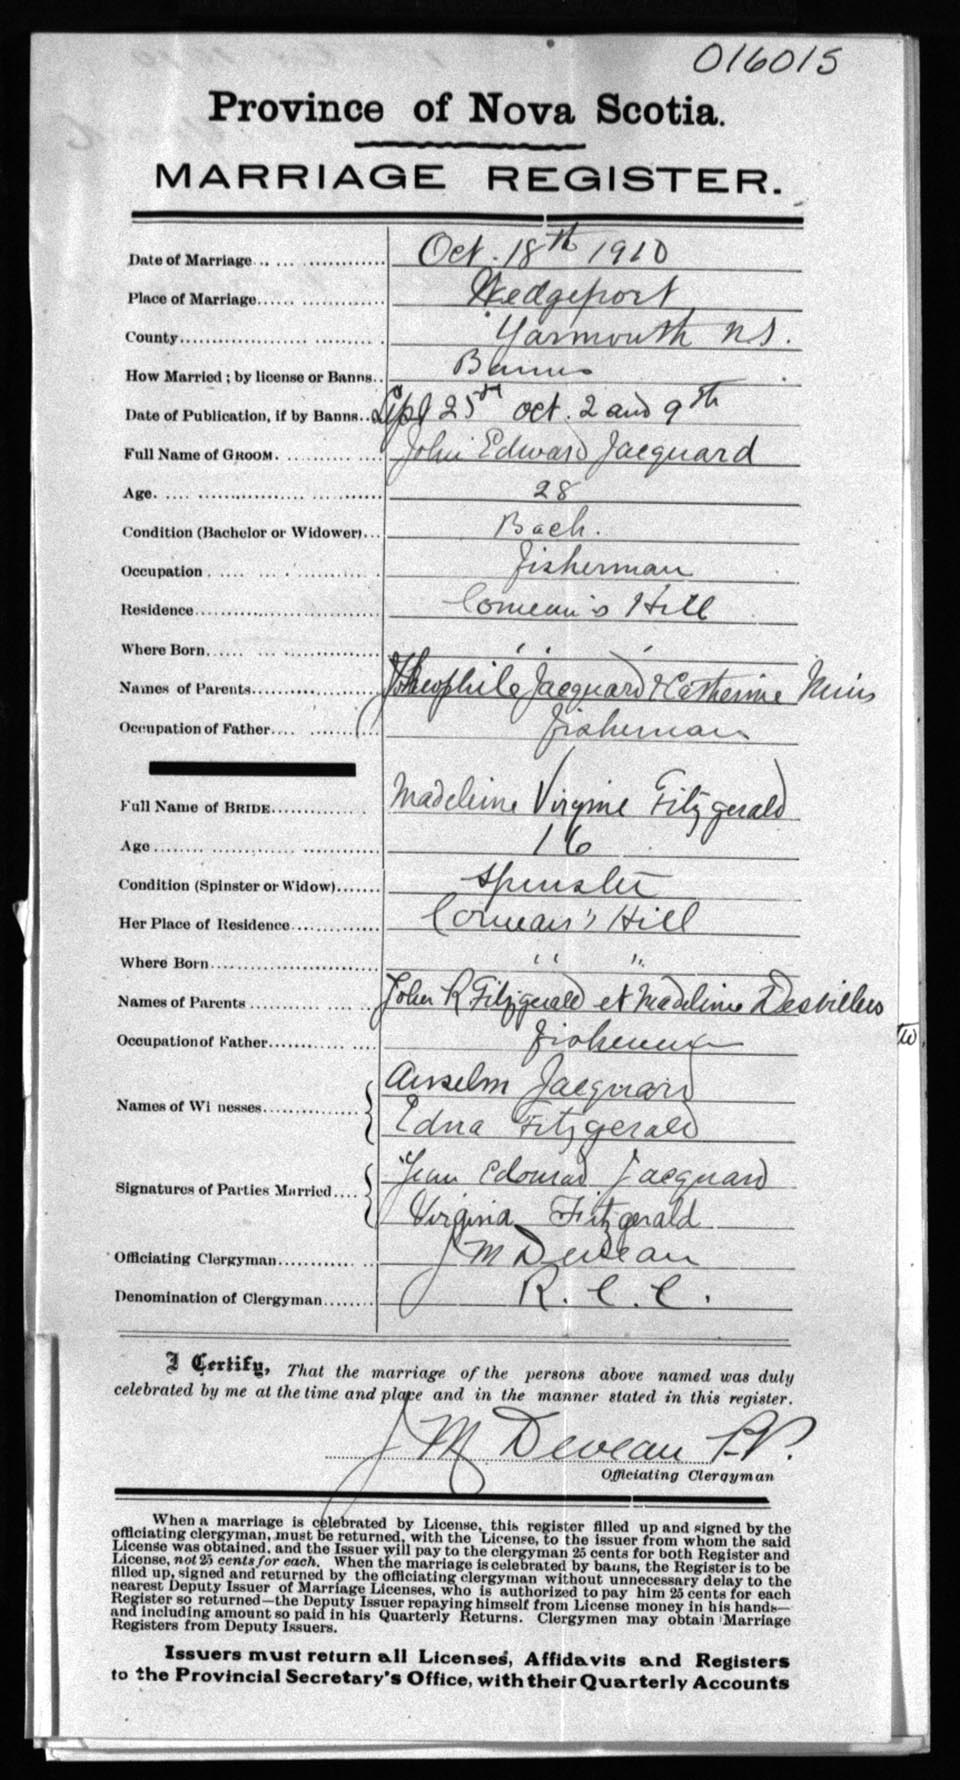 016015
Province of Nova Scotia.
MARRIAGE REGISTER.
Date of Marriage Oct. 18th 1910
Place of Marriage Wedgeport
County Yarmouth N.S.
How Married; by license or Banns Banns
Date of Publication, if by Banns Sept 25th oct. 2 and 9th
Full Name of GROOM. John Edward Jacquard
Age 28
Condition (Bachelor or Widower) Bach.
Occupation fisherman
Residence Comeau's Hill
Where Born " "
Names of Parents Theophile Jacquard & Catherine Muis
Occupation of Father fisherman
Full Name of BRIDE Madeleine Virginie Fitzgerald
Age 16
Condition (Spinster or Widow) Spinster
Her Place of Residence Comeau's Hill
Where Born " "
Names of Parents John R Fitzgerald et Madeline
Occupation of Father fisherman
Names of Wi nesses Anselm Jacquard
Edna Fitzgerald
Signatures of Parties Married Jean Edouard Jacquard
Virginia Fitzgerald
Officiating Clergyman J M Deveau
Denomination of Clergyman R. C. C.
I Certify, That the marriage of the persons above named was duly
celebrated by me at the time and place and in the manner stated in this register.
J. M. Deveau P.P.
Officiating Clergyman
When a marriage is celebrated by License, this register filled up and signed by the
officiating clergyman, must be returned, with the License, to the issuer from whom the said
License was obtained, and the Issuer will pay to the clergyman 25 cents for both Register and
License, not 25 cents for each. When the marriage is celebrated by banns, the Register is to be
filled up, signed and returned by the officiating clergyman without unnecessary delay to the
nearest Deputy Issuer of Marriage Licenses, who is authorized to pay him 25 cents for each
Register so returned—the Deputy Issuer repaying himself from License money in his hands—
and including amount so paid in his Quarterly Returns. Clergymen may obtain Marriage
Registers from Deputy Issuers.
Issuers must return all Licenses, Affidavits and Registers
to the Provincial Secretary's Office, with their Quarterly Accounts